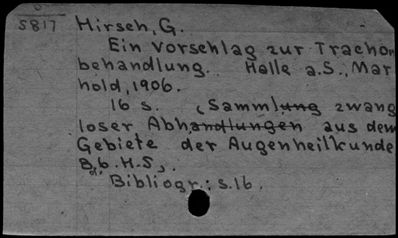 5817 Hirsch, G.
Ein Vorschlag zur Trachom
behandlung. Halle a.S., Mar
hold, 1906.
16 s. (Sammlung zwang
loser Abhandlungen aus dem
Gebiete der Augenheilkunde
Bd. 6. H. 5.).
Bibliogr.: s.16.